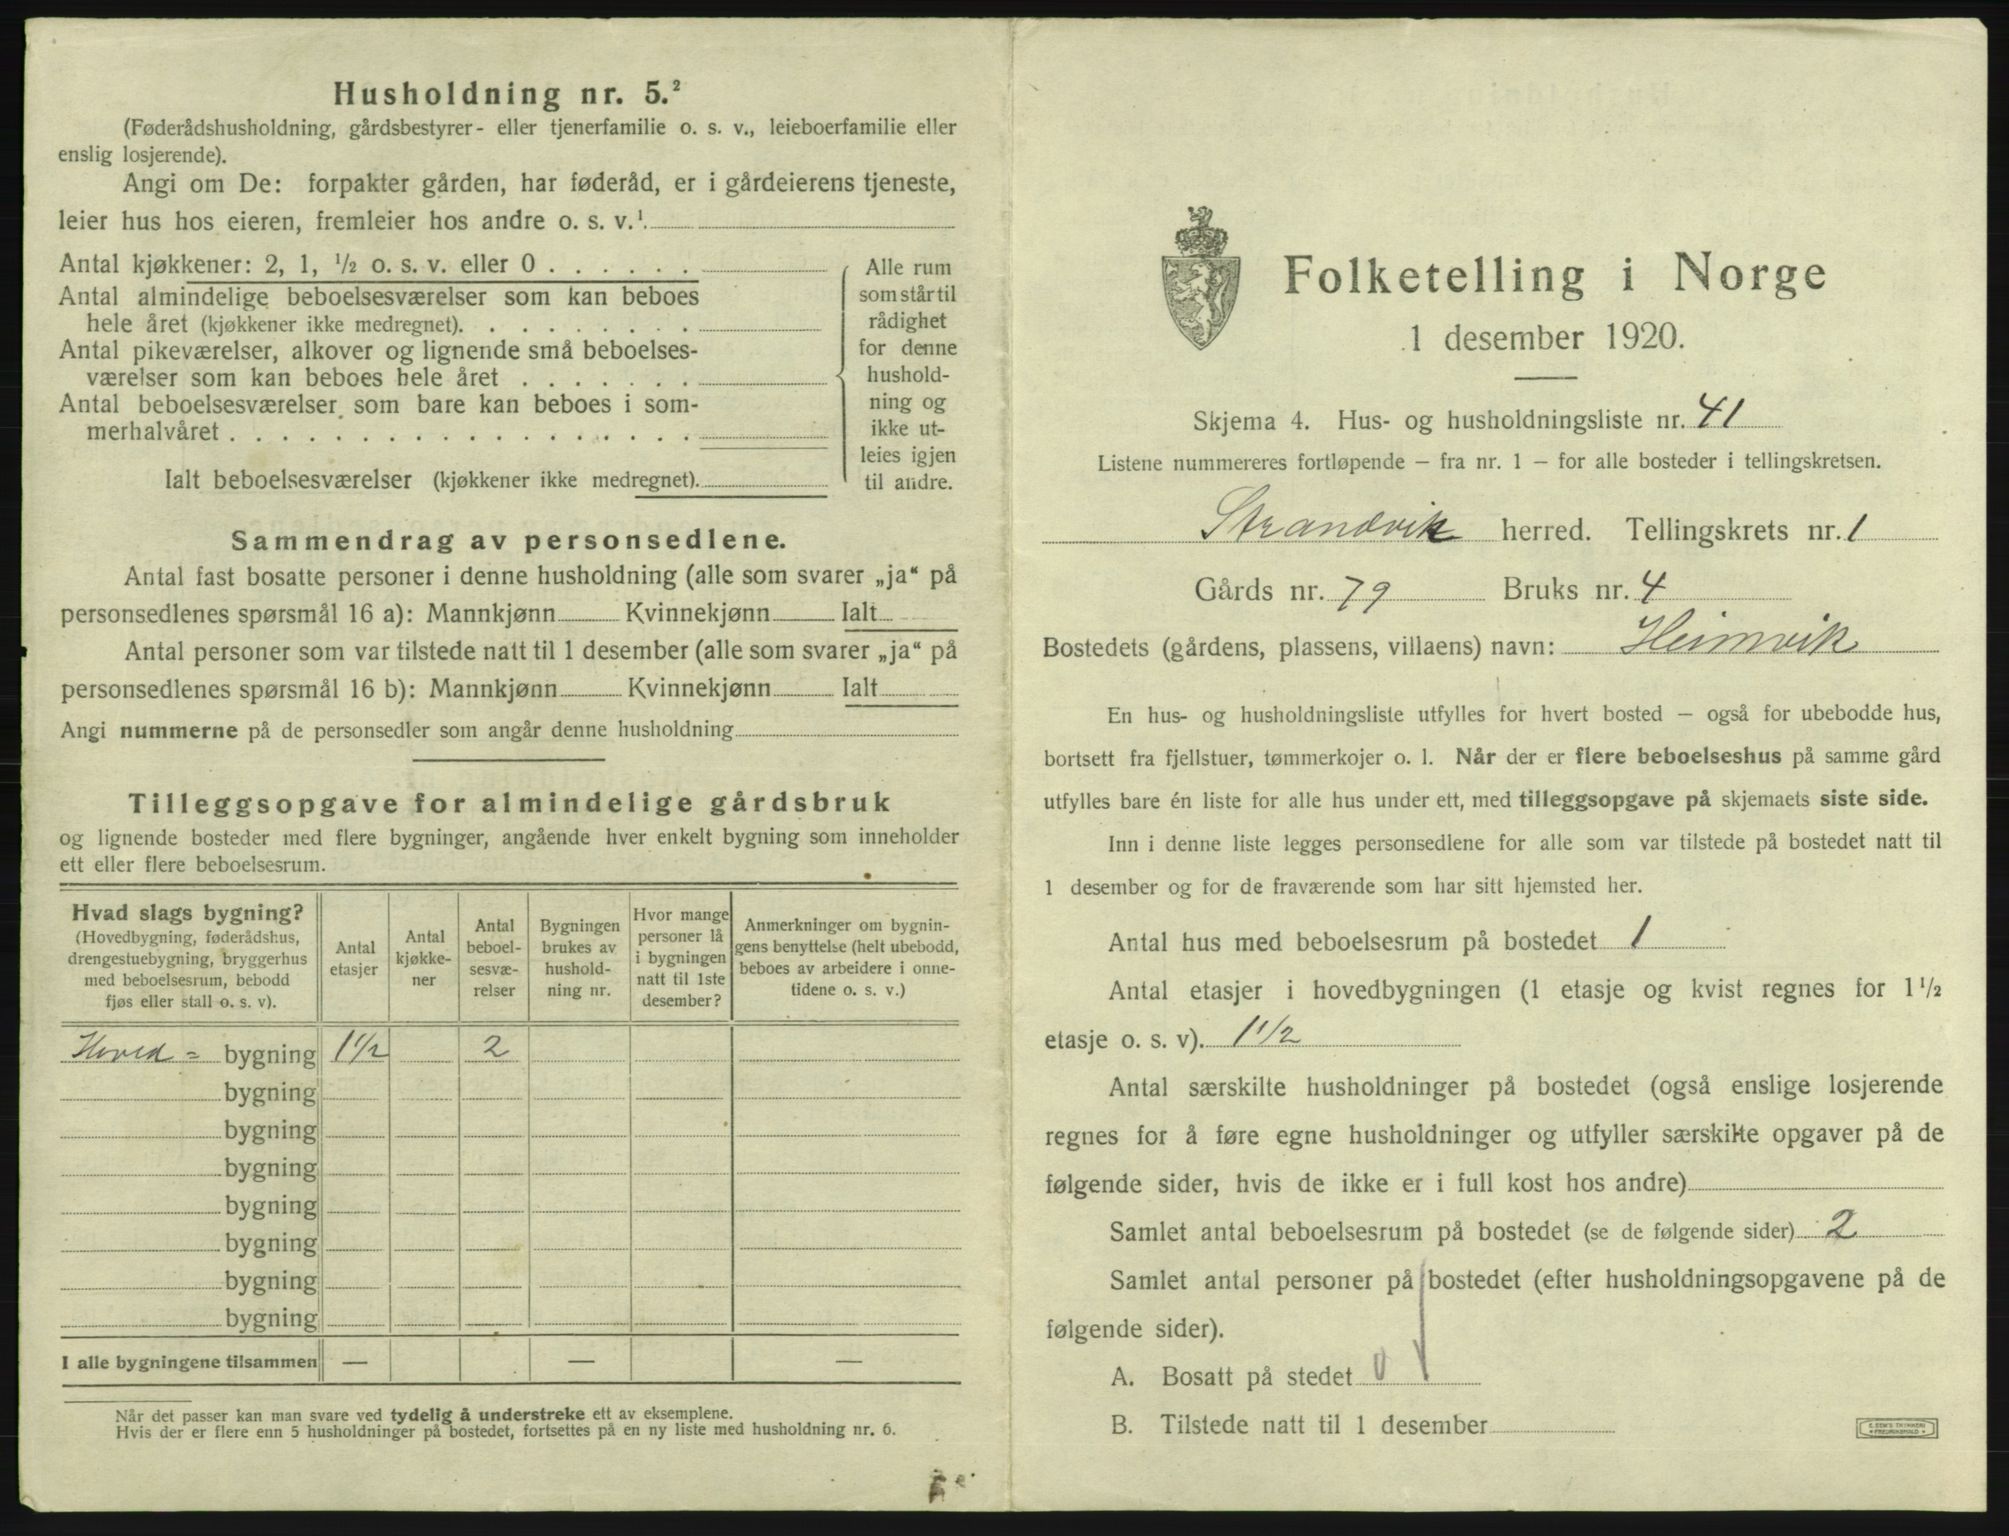 Husholdning nr. 5.²
(Føderådshusholdning, gårdsbestyrer- eller tjenerfamilie o. s. v., leieboerfamilie eller
enslig losjerende).
Angi om De: forpakter gården, har føderåd, er i gårdeierens tjeneste,
leier hus hos eieren, fremleier hos andre o. s. v.¹.
Antal kjøkkener: 2, 1, ½ o. s. v. eller 0 . . . . . .
Antal almindelige beboelsesværelser som kan beboes
hele året (kjøkkener ikke medregnet). . . . . . . . .
Antal pikeværelser, alkover og lignende små beboelses-
værelser som kan beboes hele året . . . . . . .
Antal beboelsesværelser som bare kan beboes i som-
merhalvåret . . . . . . . . . . . . . . . . . .
Ialt beboelsesværelser (kjøkkener ikke medregnet).
Alle rum
som står til
rådighet
for denne
hushold-
ning og
ikke ut-
leies igjen
til andre.
Sammendrag av personsedlene.
Antal fast bosatte personer i denne husholdning (alle som svarer „ja“ på
personsedlenes spørsmål 16 a): Mannkjønn Kvinnekjønn Ialt
Antal personer som var tilstede natt til 1 desember (alle som svarer „ja“ på
personsedlenes spørsmål 16 b): Mannkjønn Kvinnekjønn Ialt
Angi nummerne på de personsedler som angår denne husholdning
Tilleggsopgave for almindelige gårdsbruk
og lignende bosteder med flere bygninger, angående hver enkelt bygning som inneholder
ett eller flere beboelsesrum.
Hvad slags bygning?
(Hovedbygning, føderådshus,
drengestuebygning, bryggerhus
med beboelsesrum, bebodd
fjøs eller stall o. s. v).
Antal
etasjer
Antal
kjøkke-
ner
Antal
beboel-
sesvæ-
relser
Bygningen
brukes av
hushold-
ning nr.
Hvor mange
personer lå
i bygningen
natt til 1ste
desember?
Anmerkninger om bygnin-
gens benyttelse (helt ubebodd,
beboes av arbeidere i onne-
tidene o. s. v.)
Hoved = bygning 1½ 2
bygning
bygning
bygning
bygning
bygning
bygning
bygning
I alle bygningene tilsammen — — —
Når det passer kan man svare ved tydelig å understreke ett av eksemplene.
Hvis der er flere enn 5 husholdninger på bostedet, fortsettes på en ny liste med husholdning nr. 6.
Folketelling i Norge
1 desember 1920.
Skjema 4. Hus- og husholdningsliste nr. 41
Listene nummereres fortløpende — fra nr. 1 — for alle bosteder i tellingskretsen.
Strandvik herred. Tellingskrets nr. 1
Gårds nr. 79 Bruks nr. 4
Bostedets (gårdens, plassens, villaens) navn: Heimvik
En hus- og husholdningsliste utfylles for hvert bosted — også for ubebodde hus,
bortsett fra fjellstuer, tømmerkojer o. l. Når der er flere beboelseshus på samme gård
utfylles bare én liste for alle hus under ett, med tilleggsopgave på skjemaets siste side.
Inn i denne liste legges personsedlene for alle som var tilstede på bostedet natt til
1 desember og for de fraværende som har sitt hjemsted her.
Antal hus med beboelsesrum på bostedet 1
Antal etasjer i hovedbygningen (1 etasje og kvist regnes for 1½
etasje o. s. v). 1½
Antal særskilte husholdninger på bostedet (også enslige losjerende
regnes for å føre egne husholdninger og utfyller særskilte opgaver på de
følgende sider, hvis de ikke er i full kost hos andre)
Samlet antal beboelsesrum på bostedet (se de følgende sider) 2
Samlet antal personer på bostedet (efter husholdningsopgavene på de
følgende sider).
A. Bosatt på stedet 0
B. Tilstede natt til 1 desember